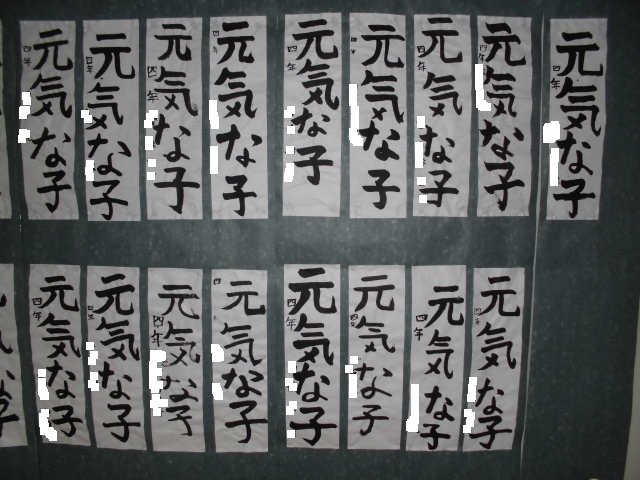 元気な子
四年
元気な子
四年
元気な子
四年
元気な子
四
元気な子
四年
元気な子
四年
元気な子
四年
元気な子
四年
元気な子
四年
元気な子
四年
元気な子
四年
元気な子
四年
元気な子
四年
元気な子
四
元気な子
四年
元気な子
四年
元気な子
四年